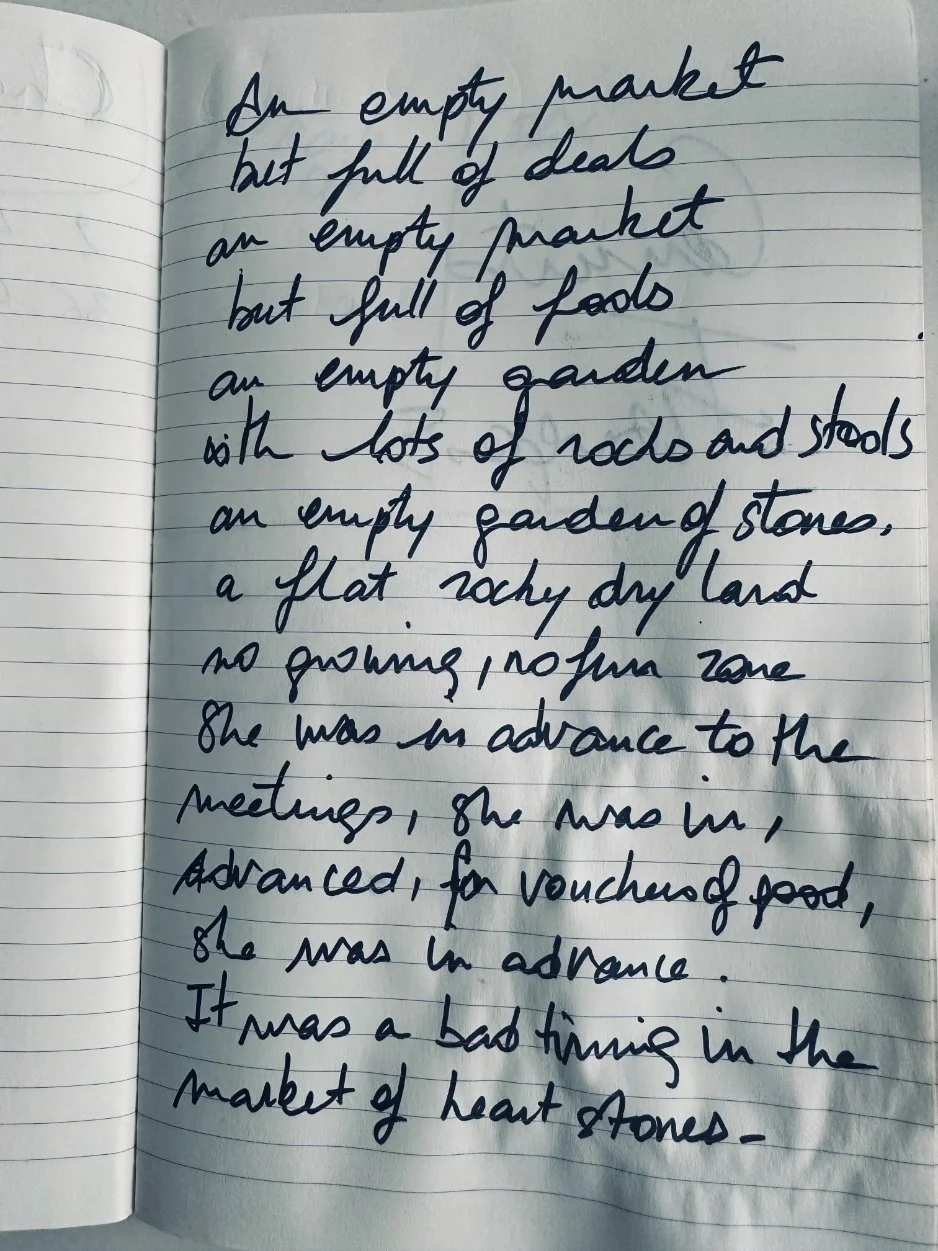 An empty market
but full of deals
an empty market
but full of foods
an empty garden
with lots of rocks and stools
an empty garden of stones,
a flat rocky dry land
no growing, no fun zone
She was in advance to the
meetings, she was in,
Advanced, for vouchers of food,
she was in advance.
It was a bad timing in the
market of heart stones_